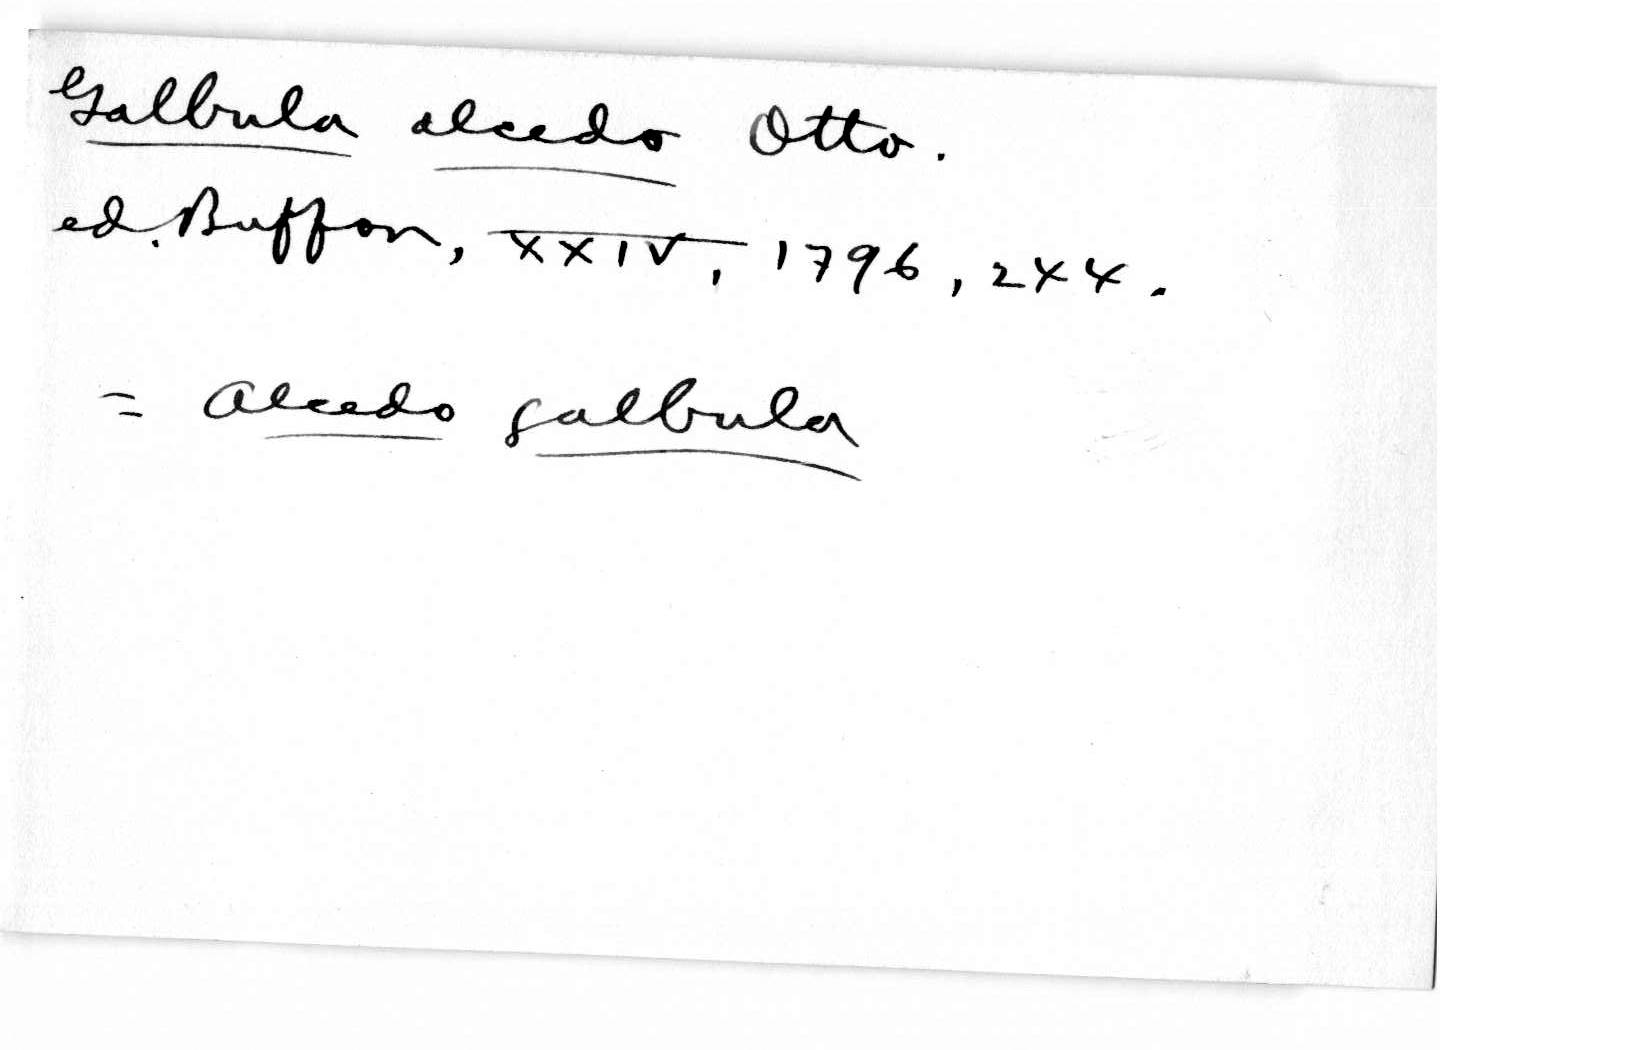 Galbula alcedo Otto.
ed. Buffon, XXIV, 1796, 244.
= Alcedo galbula